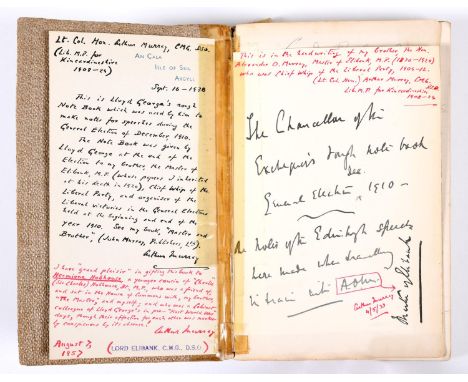 Lt. Col. Hon. Arthur Murray, C.M.G., D.S.O.
(Lib. M.P. for
Kincardineshire
1908-23)
AN CALA
ISLE OF SEIL
ARGYLL
Sept. 16 - 1938
This is Lloyd George's rough
Note Book which was used by him to
make notes for speeches during the
General Election of December, 1910.
The Note Book was given by
Lloyd George at the end of the
Election to my brother, the Master of
Elibank, M.P. (whose papers I inherited
at his death in 1920), Chief Whip of the
Liberal Party, and organiser of the
Liberal victories in the General Elections
held at the beginning and end of the
year 1910. See my book, "Master and
Brother", (John Murray, Publishers, Ltd).
Arthur Murray
I have "grand plaisir" in gifting this book to
Hermione Hobhouse, a younger cousin of "Charles"
(Sir Charles) Hobhouse, Bt, M.P., who was a friend of
and sat in the House of Commons with, my brother,
"The Master", and myself; and who was a Cabinet
Colleague of Lloyd George's in pre-
by
Arthur Murray
August 7,
1957
(LORD ELIBANK, C.M.G., D.S.O.)
This is in the handwriting of my brother, the Hon.
Alexander O. Murray, Master of Elibank, M.P. (1870-1920)
who was Chief Whip of the Liberal Party, 1909-12.
(Lt. Col. Hon.) Arthur Murray, C.M.G., D.S.O.
Lib. M.P. for Kincardineshire,
1908-23
The Chancellor of the
Exchequer's rough note book
Dec.
General Election 1910 -
The notes of the Edinburgh speech
were made when travelling
in train with
Arthur Murray
Master of Elibank